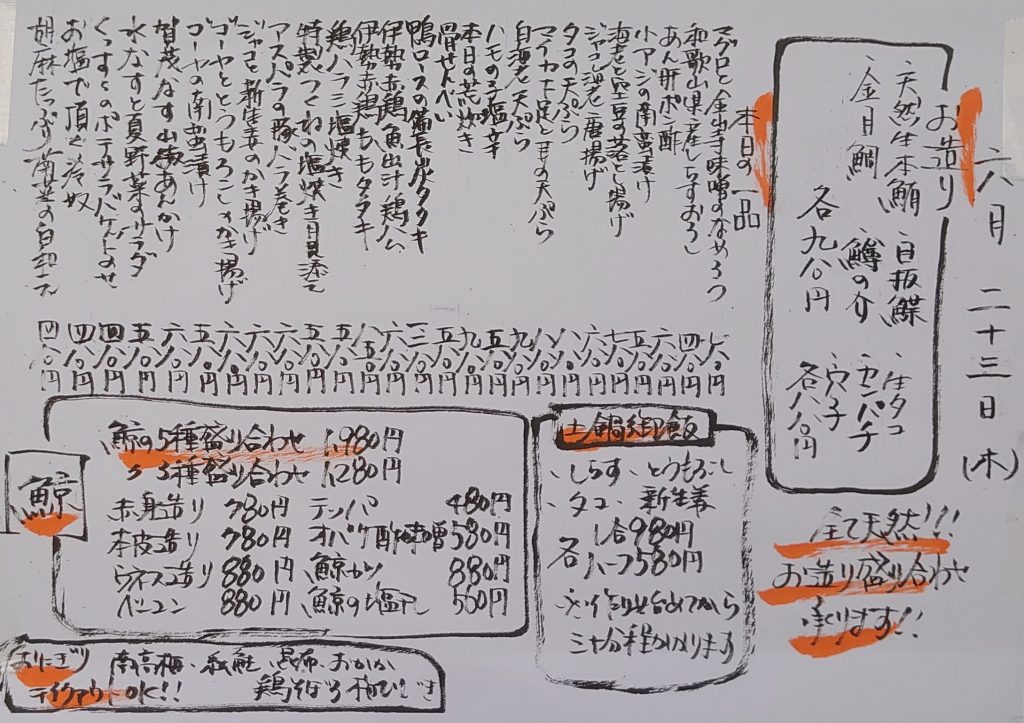 六月二十三日(木)
お造り
・天然生本鮪
・金目鯛
・目板鰈
・鱒の介
各九八〇円
・生タコ
・カンパチ
・穴子
各八八〇円
全て天然!!!
お造り盛り合わせ
承ります!!
本日の一品
マグロと金山寺味噌のなめろう 七八〇円
和歌山県産しらすおろし 四八〇円
あん肝ポン酢 六八〇円
小アジの南蛮漬け 五八〇円
海老と空豆の落とし揚げ 七八〇円
ジャコ海老唐揚げ 六八〇円
タコの天ぷら 八八〇円
マイカ下足と芽の天ぷら 八八〇円
白海老天ぷら 九八〇円
ハモの子塩辛 五八〇円
本日の荒炊き 九八〇円
骨せんべい
鴨ロースの備長炭タタキ
伊勢赤鶏魚出汁鶏ハム
伊勢赤鶏もものタタキ
鶏ハラミ塩焼き
特製つくねの塩焼き 目見添え
アスパラの豚バラ巻き
ジャコと新生姜のかき揚げ
ゴーヤととうもろこしかき揚げ
ゴーヤの南蛮漬け
賀茂なす山椒あんかけ
水なすと夏野菜のサラダ
くんすくのポテサラバゲットのせ
お塩で頂く冷奴
胡麻たっぷり青菜の白和え 四八〇円
鯨
鯨の5種盛り合わせ 1,980円
〃 3種盛り合わせ 1,280円
赤身造り 780円 テッパ 480円
本皮造り 780円 オバケ酢味噌 580円
ウネス造り 880円 鯨カツ 880円
ベーコン 880円 鯨の塩 580円
土鍋御飯
・しらす・とうもろこし
・タコ・新生姜
各 1合980円
ハーフ580円
※作り始めてから
三十分程かかります
おにぎり 南高梅・紅鮭・昆布・おかか
テイクアウトOK!! 鶏そぼろ・梅ひじき